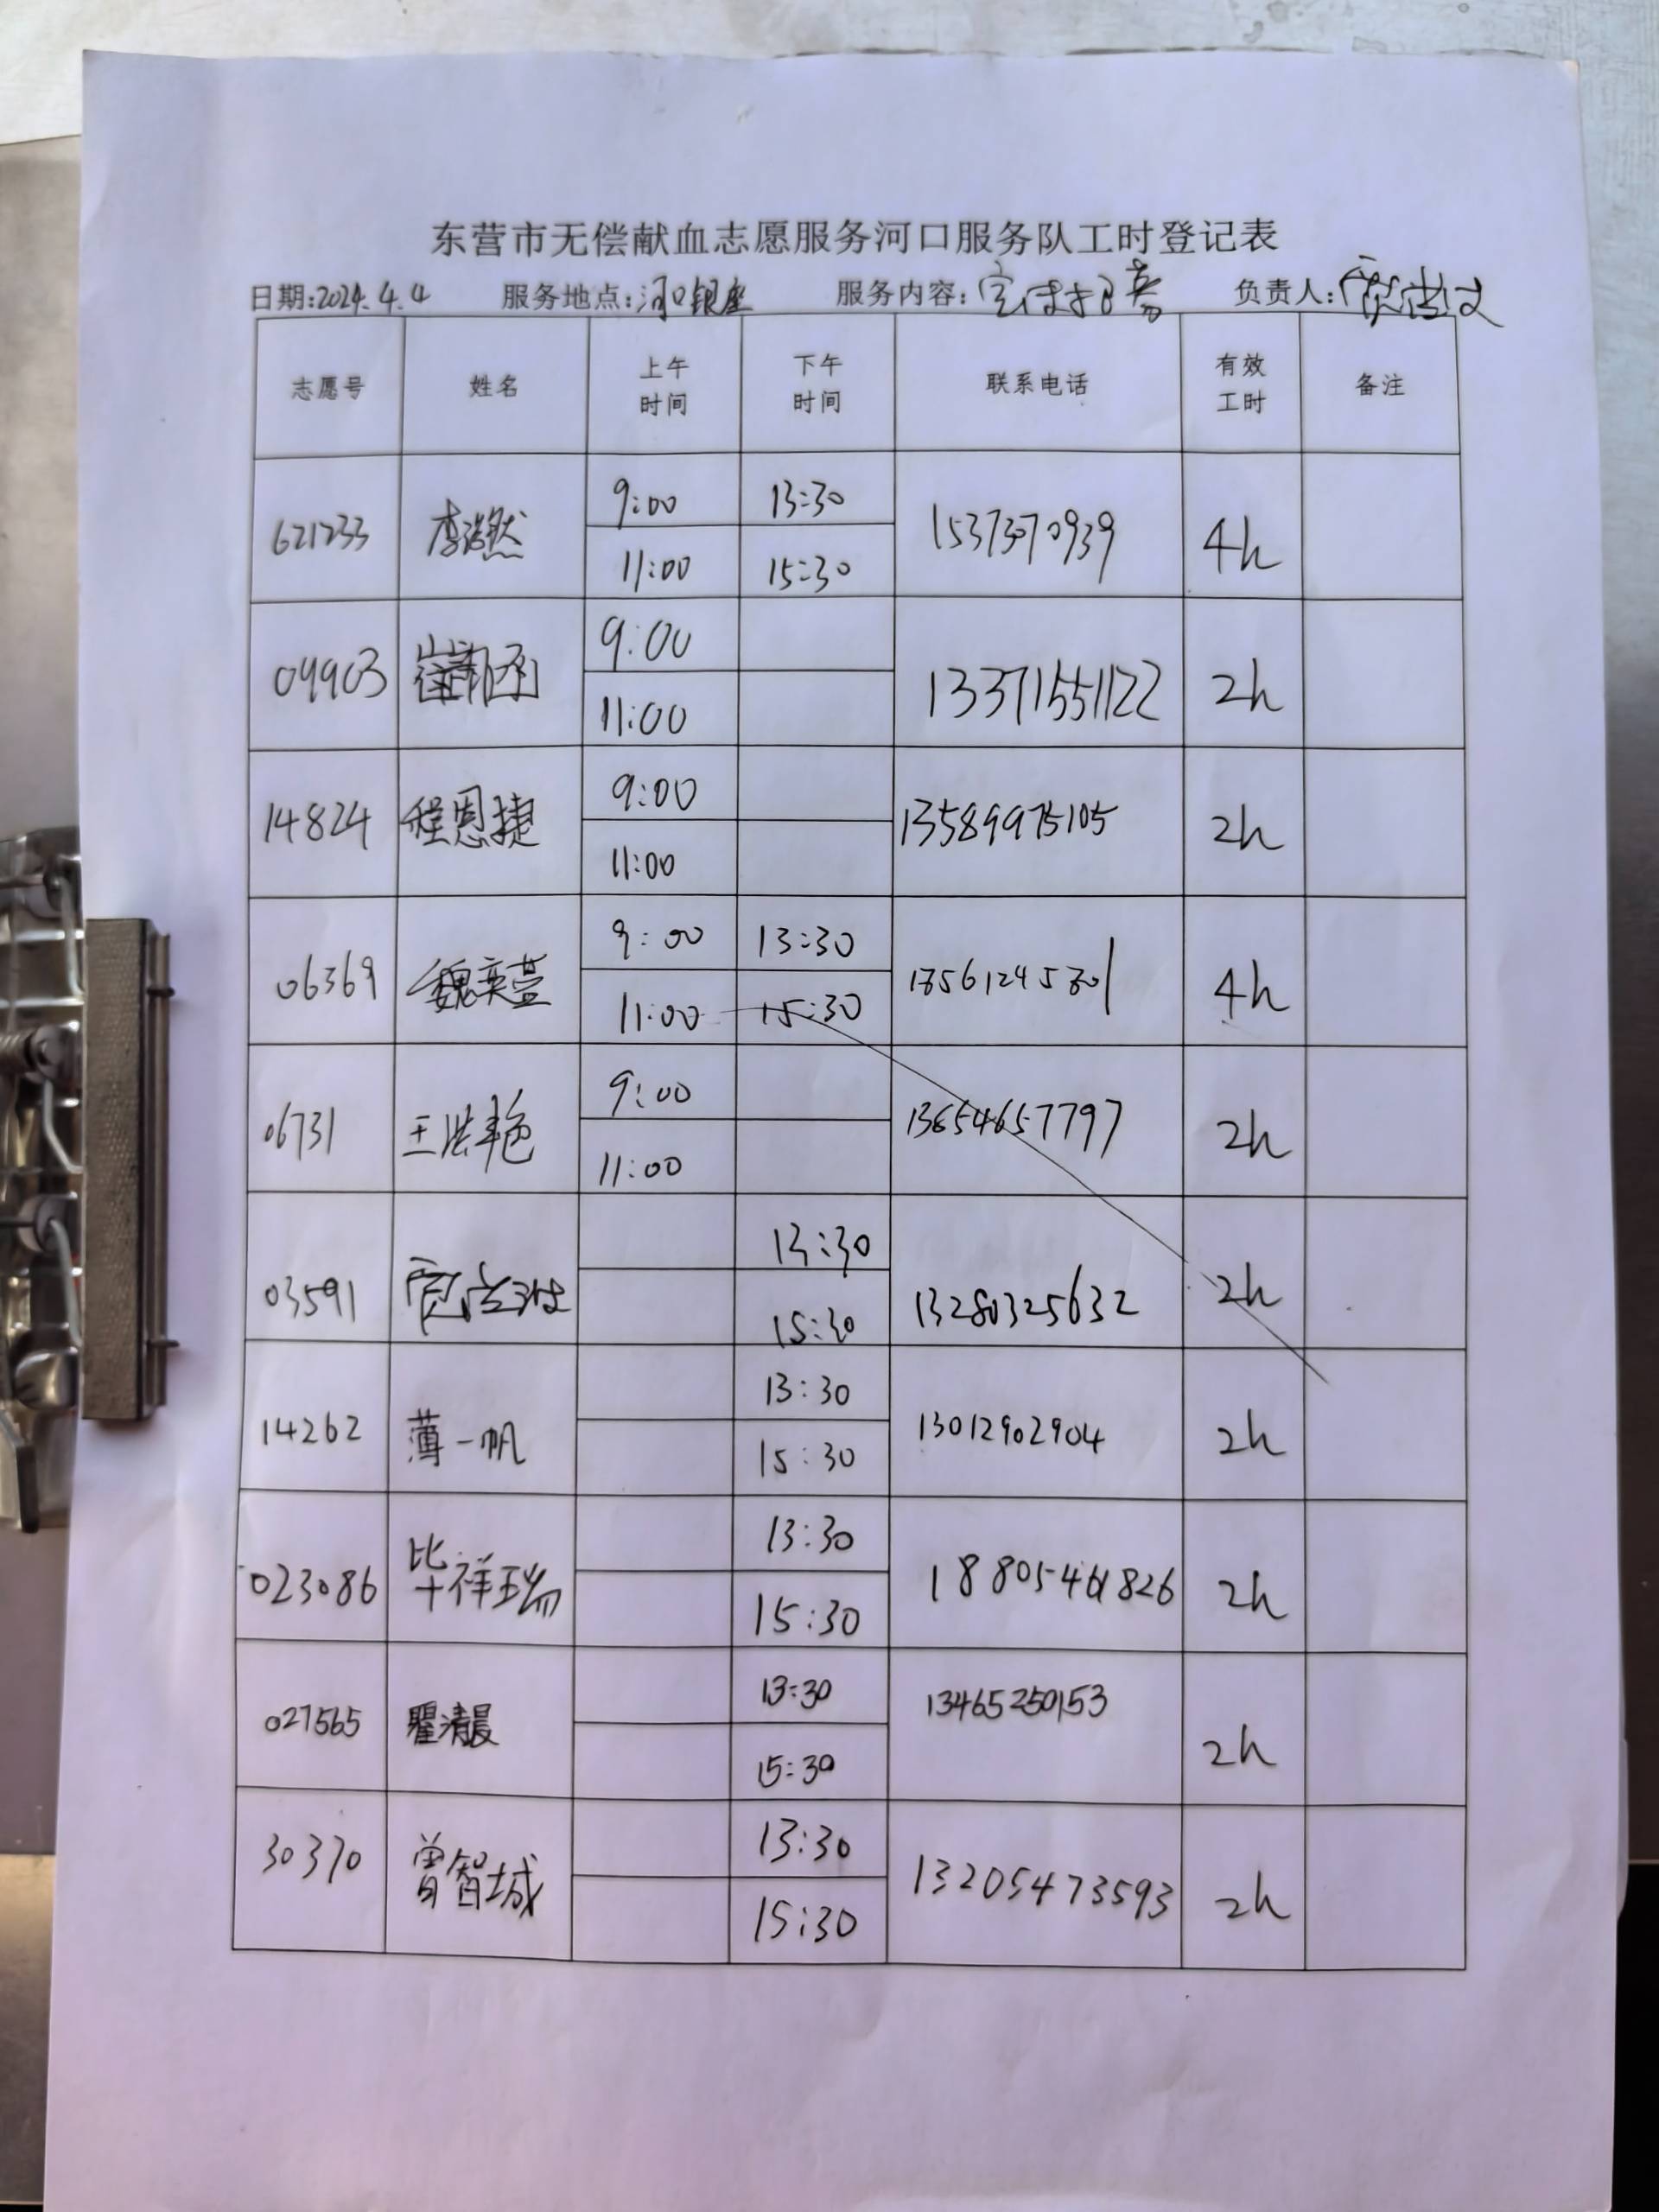 东营市无偿献血志愿服务河口服务队工时登记表
日期:2024.4.4 服务地点:河口银座 服务内容:宣传招募 负责人:
志愿号 姓名 上午时间 下午时间 联系电话 有效工时 备注
621233 李浩然 9:00 11:00 13:30 15:30 15373070939 4h
09903 9:00 11:00 13371551122 2h
14824 程恩捷 9:00 11:00 13589975105 2h
06369 魏奕萱 9:00 11:00 13:30 15:30 4h
06731 王洪艳 9:00 11:00 13654657797 2h
03591 13:30 15:30 13280325632 2h
14262 薄一帆 13:30 15:30 13012902904 2h
023086 毕祥瑞 13:30 15:30 18805461826 2h
027565 瞿清晨 13:30 15:30 13465250153 2h
30370 曾智城 13:30 15:30 13205473593 2h